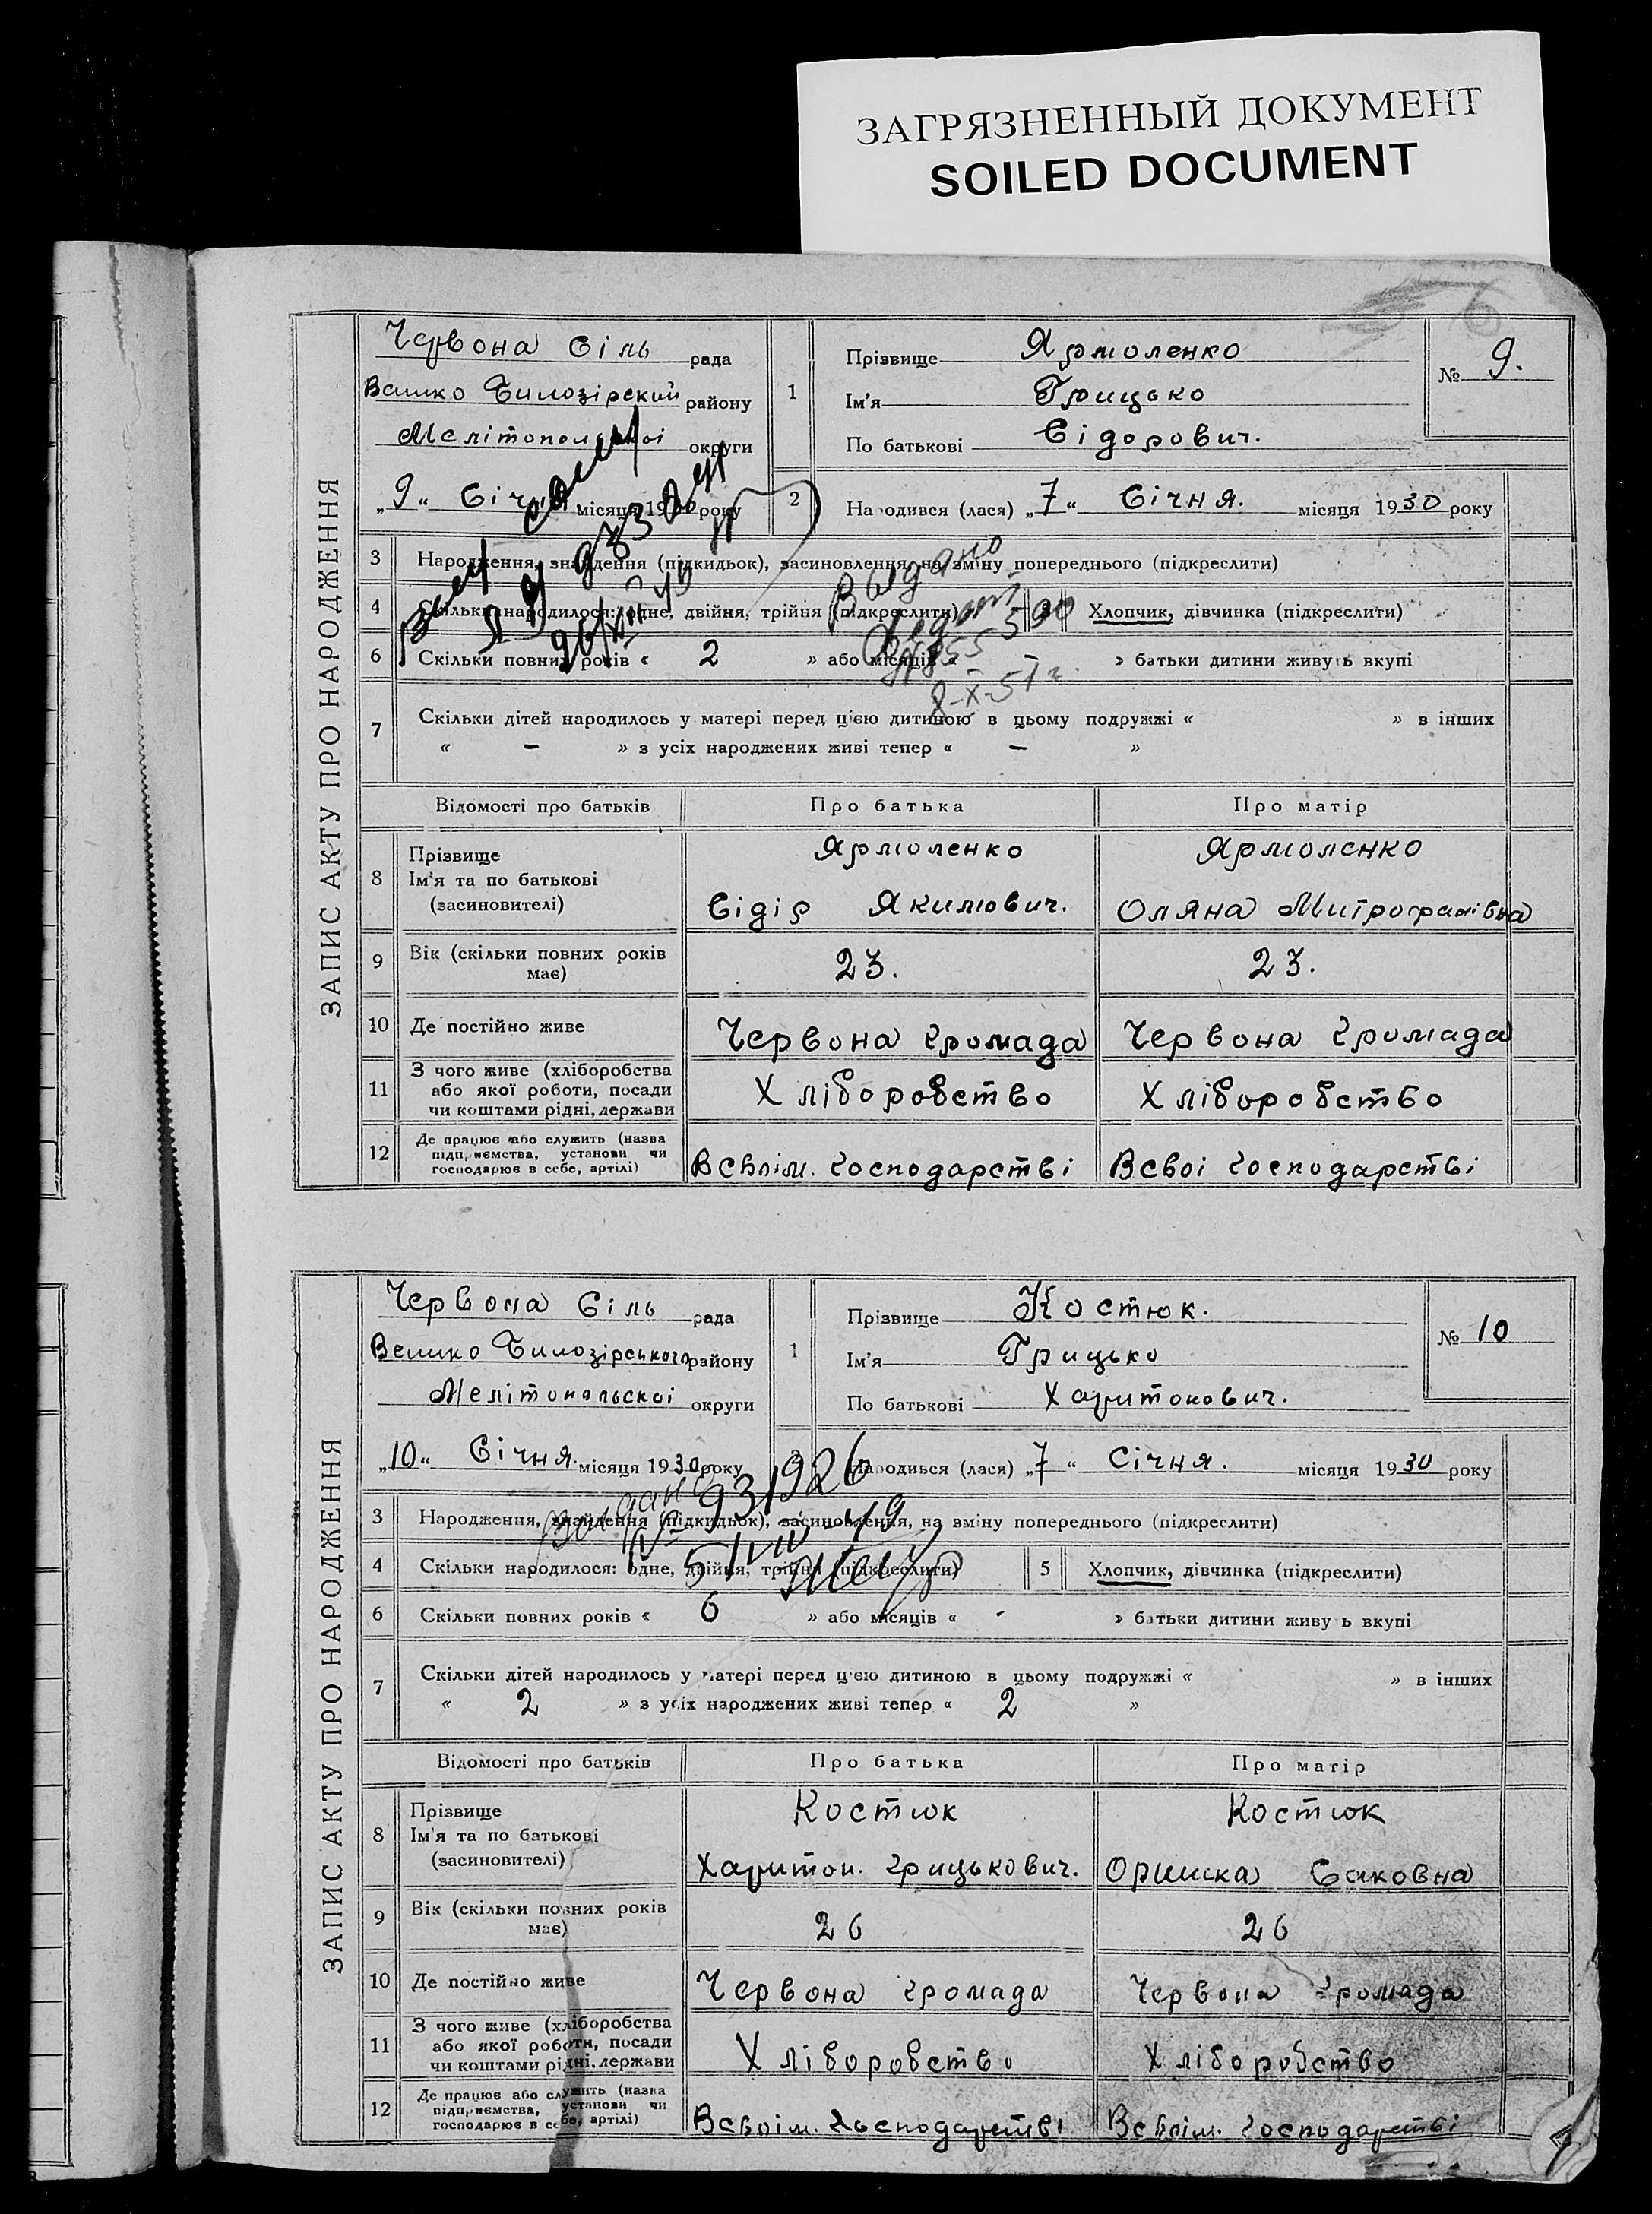 ЗАГРЯЗНЕННЫЙ ДОКУМЕНТ
SOILED DOCUMENT
6
ЗАПИС АКТУ ПРО НАРОДЖЕННЯ
Червона Сіль рада
Велико Билозірский району
Мелітопольскоі округи
„9“ Січня місяця 1930 року
1
Прізвище Ярмоленко
Ім'я Грицько
По батькові Сідорович.
№ 9.
2 Народився (лася) „7“ Січня. місяця 1930 року
3 Народження, знайдення (підкидьок), засиновлення, на зміну попереднього (підкреслити)
4 Скільки народилося: одне, двійня, трійня (підкреслити) 5 Хлопчик, дівчинка (підкреслити)
6 Скільки повних років « 2 » або місяців « - » батьки дитини живуть вкупі
Выдано
8-X-51 г.
7 Скільки дітей народилось у матері перед цією дитиною в цьому подружжі « » в інших
« – » з усіх народжених живі тепер « – »
Відомості про батьків Про батька Про матір
8 Прізвище
Ім'я та по батькові
(засиновителі)
Ярмоленко Ярмоленко
Сідір Якимович. Оляна Митрофанівна
9 Вік (скільки повних років має) 23. 23.
10 Де постійно живе Червона громада Червона громада
11 З чого живе (хліборобства
або якої роботи, посади
чи коштами рідні, держави
Хліборобство Хліборобство
12 Де працює або служить (назва
підприємства, установи чи
господарює в себе, артілі)
В своім. господарстві В своі господарстві
ЗАПИС АКТУ ПРО НАРОДЖЕННЯ
Червона Сіль рада
Велико Билозірського району
Мелітопальскоі округи
„10“ Січня. місяця 1930 року
1
Прізвище Костюк.
Ім'я Грицько
По батькові Харитонович.
№ 10
2 Народився (лася) „7“ Січня. місяця 1930 року
3 Народження, знайдення (підкидьок), засиновлення, на зміну попереднього (підкреслити)
4 Скільки народилося: одне, двійня, трійня (підкреслити) 5 Хлопчик, дівчинка (підкреслити)
6 Скільки повних років « 6 » або місяців « - » батьки дитини живуть вкупі
7 Скільки дітей народилось у матері перед цією дитиною в цьому подружжі « » в інших
« 2 » з усіх народжених живі тепер « 2 »
Відомості про батьків Про батька Про матір
8 Прізвище
Ім'я та по батькові
(засиновителі)
Костюк Костюк
Харитон. Грицькович. Оришка Саковна
9 Вік (скільки повних років має) 26 26
10 Де постійно живе Червона громада Червона громада
11 З чого живе (хліборобства
або якої роботи, посади
чи коштами рідні, держави
Хліборобство Хліборобство
12 Де працює або служить (назва
підприємства, установи чи
господарює в себе, артілі)
В своім. господарстві В своім. господарстві